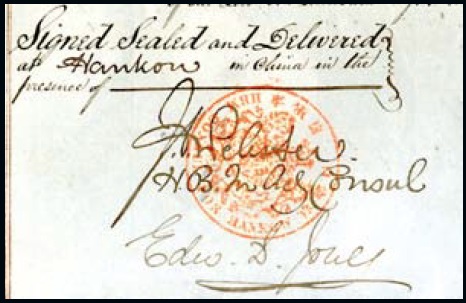 Signed Sealed and Delivered
at Hankow in China in the
presence of
J. Webster.
H.B.M Actg Consul
HANKOW
Edw. D. Jones